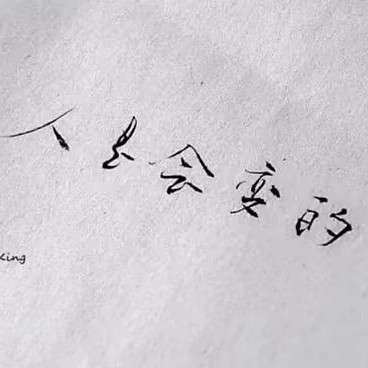 人是会变的
King